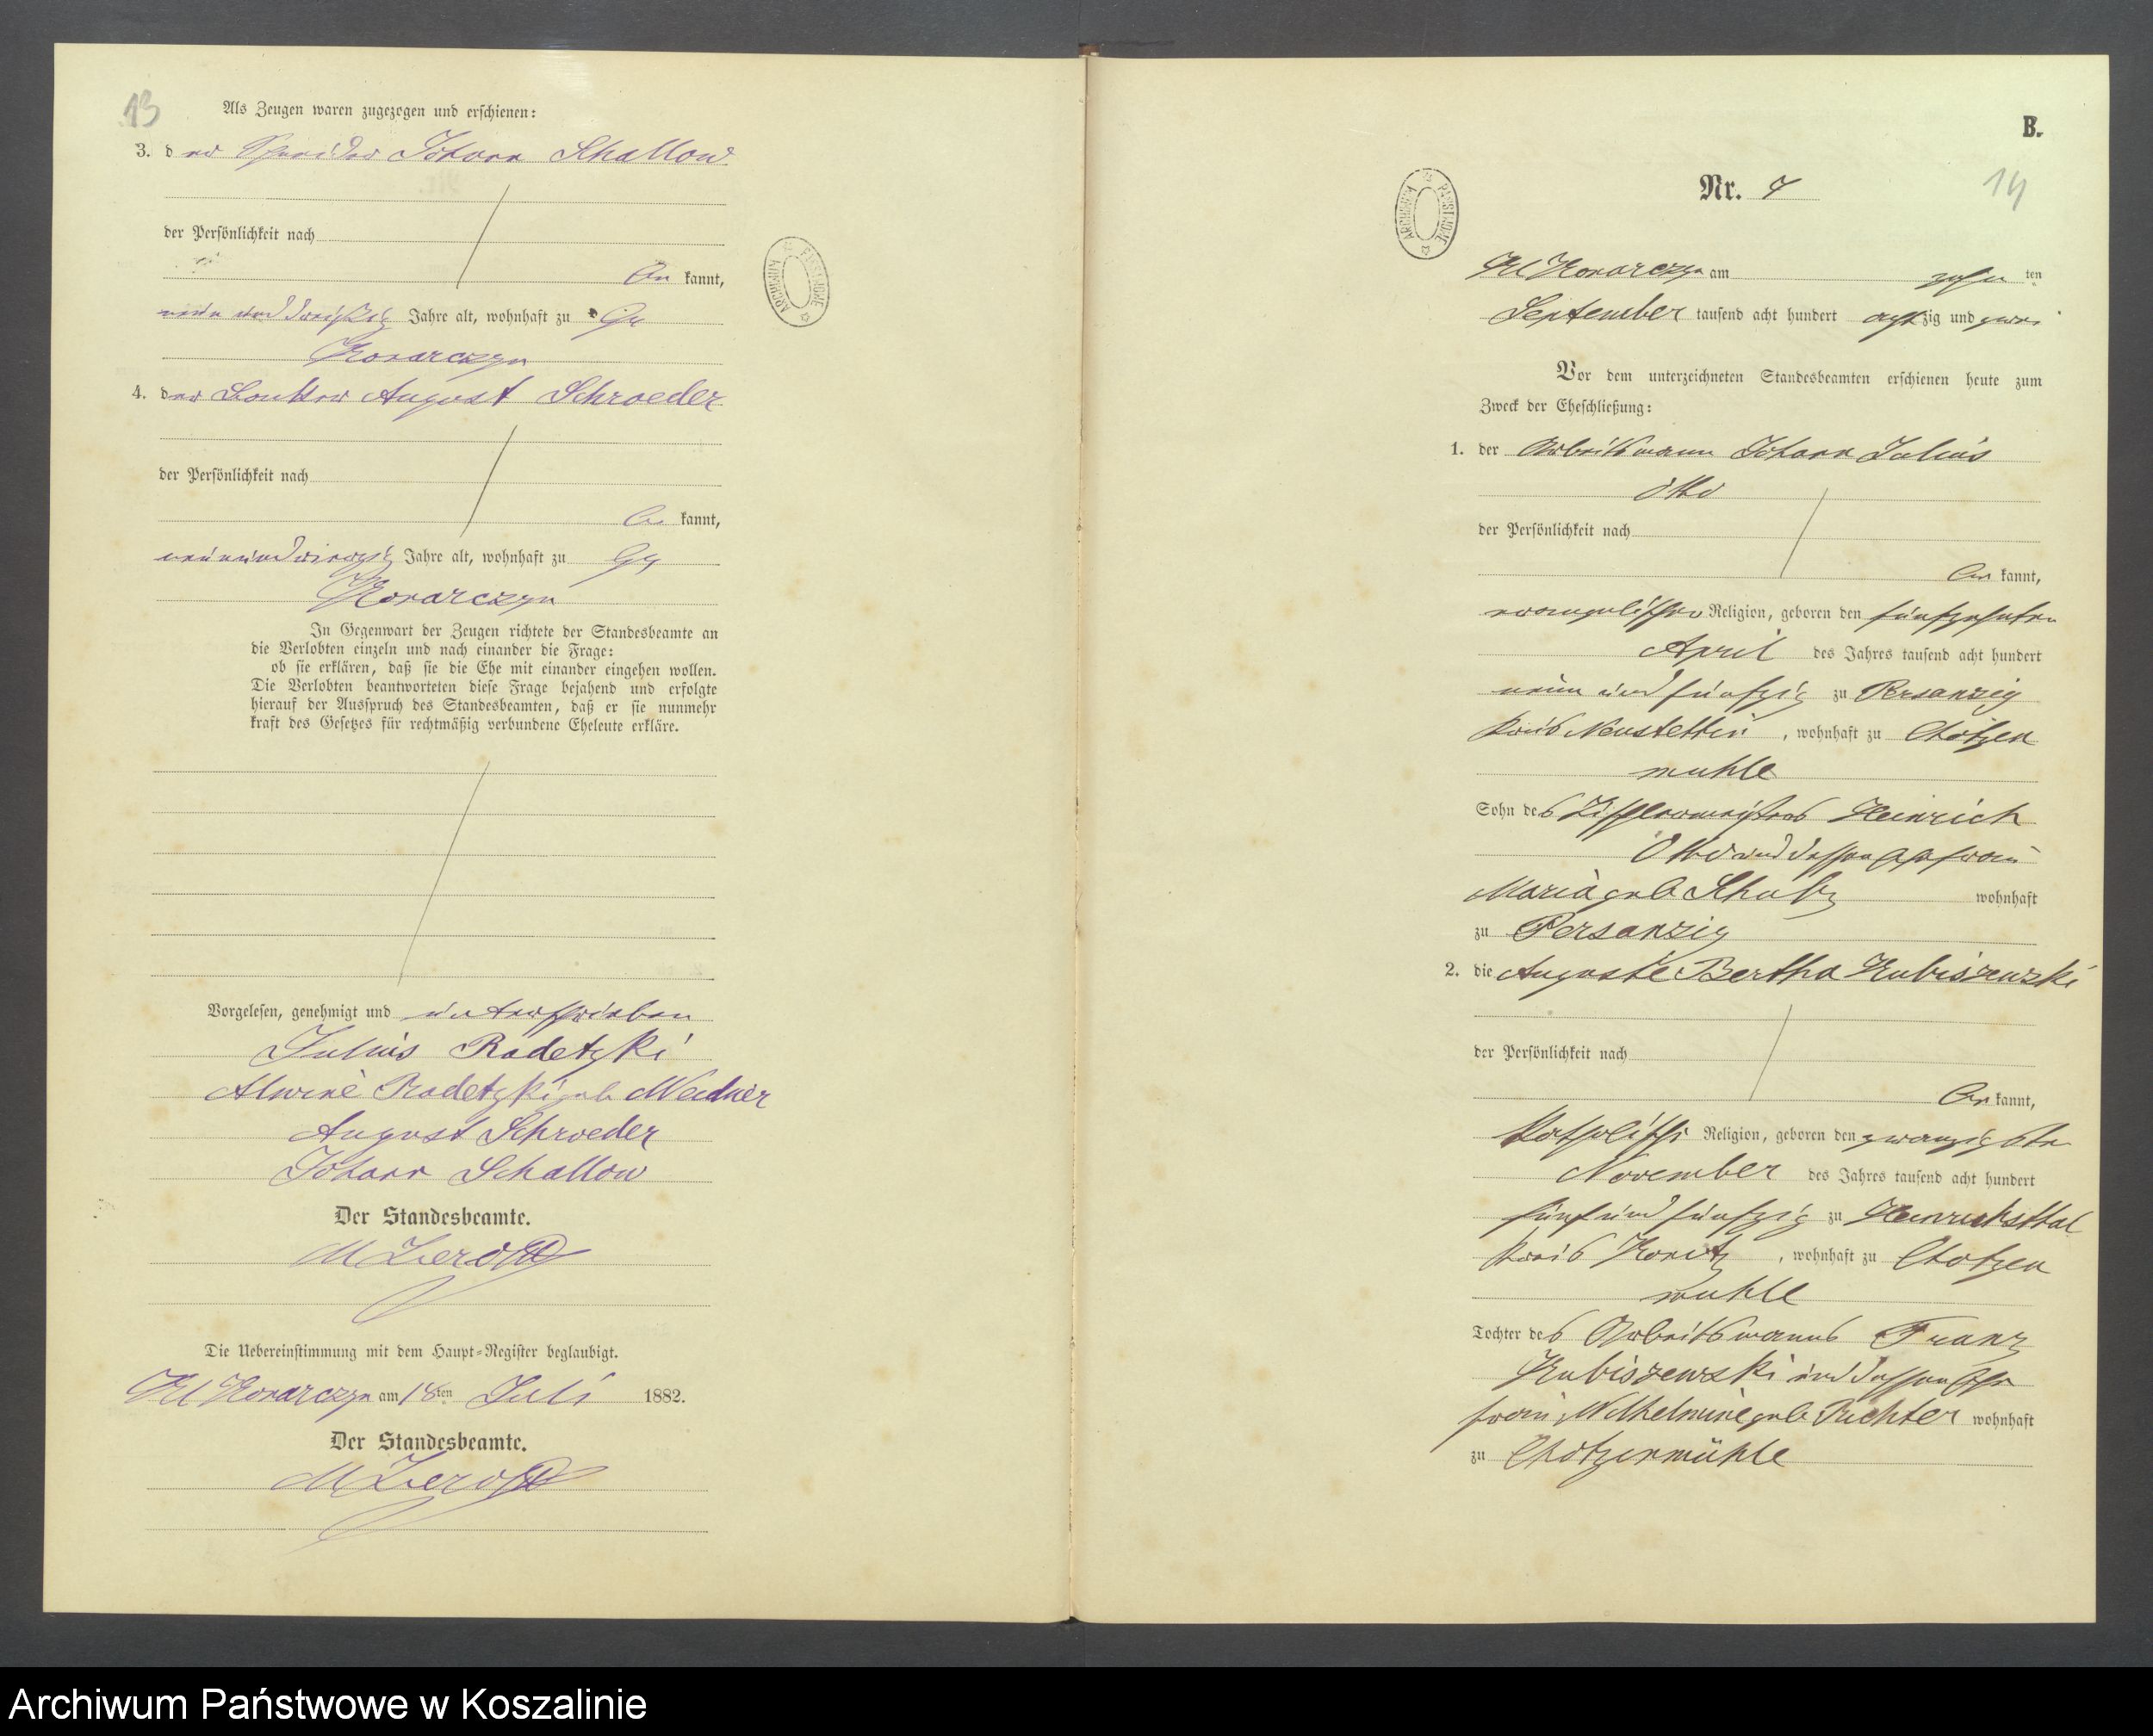 13
Als Zeugen waren zugezogen und erschienen:
3. der Schneider Johann Schallow
der Persönlichkeit nach
be kannt,
neun und dreißig Jahre alt, wohnhaft zu Gr
Konarczyn
4. der Bauer August Schroeder
der Persönlichkeit nach
be kannt,
neunundvierzig Jahre alt, wohnhaft zu Gr
Konarczyn
In Gegenwart der Zeugen richtete der Standesbeamte an
die Verlobten einzeln und nach einander die Frage:
ob sie erklären, daß sie die Ehe mit einander eingehen wollen.
Die Verlobten beantworteten diese Frage bejahend und erfolgte
hierauf der Ausspruch des Standesbeamten, daß er sie nunmehr
kraft des Gesetzes für rechtmäßig verbundene Eheleute erkläre.
Vorgelesen, genehmigt und unterschrieben
Julius Radetzki
Alwine Radetzki geb Weidner
August Schroeder
Johann Schallow
Der Standesbeamte.
Die Uebereinstimmung mit dem Haupt-Register beglaubigt.
Kl Konarczyn am 18ten Juli 1882.
Der Standesbeamte.
ARCHIWUM PAŃSTWOWE
B.
Nr. 7
14
ARCHIWUM PAŃSTWOWE
Kl Konarczyn am zehn ten
September tausend acht hundert achtzig und zwei
Vor dem unterzeichneten Standesbeamten erschienen heute zum
Zweck der Eheschließung:
1. der Arbeitsmann Johann Julius
Otto
der Persönlichkeit nach
be kannt,
evangelischer Religion, geboren den fünfzehnten
April des Jahres tausend acht hundert
neun und fünfzig zu Persanzig
Kreis Neustettin, wohnhaft zu Chotzen
muhle
Sohn des Tischlermeisters Heinrich
Otto und dessen Ehefrau
Maria geb Schulz wohnhaft
zu Persanzig
2. die Auguste Bertha Kubiszewski
der Persönlichkeit nach
be kannt,
katholischer Religion, geboren den zwanzigsten
November des Jahres tausend acht hundert
fünf und fünfzig zu Heinrichsthal
Kreis Konitz, wohnhaft zu Chotzen
muhle
Tochter des Arbeitsmanns Franz
Kubiszewski und dessen Ehe
frau Wilhelmine geb Richter wohnhaft
zu Chotzenmühle
Archiwum Państwowe w Koszalinie